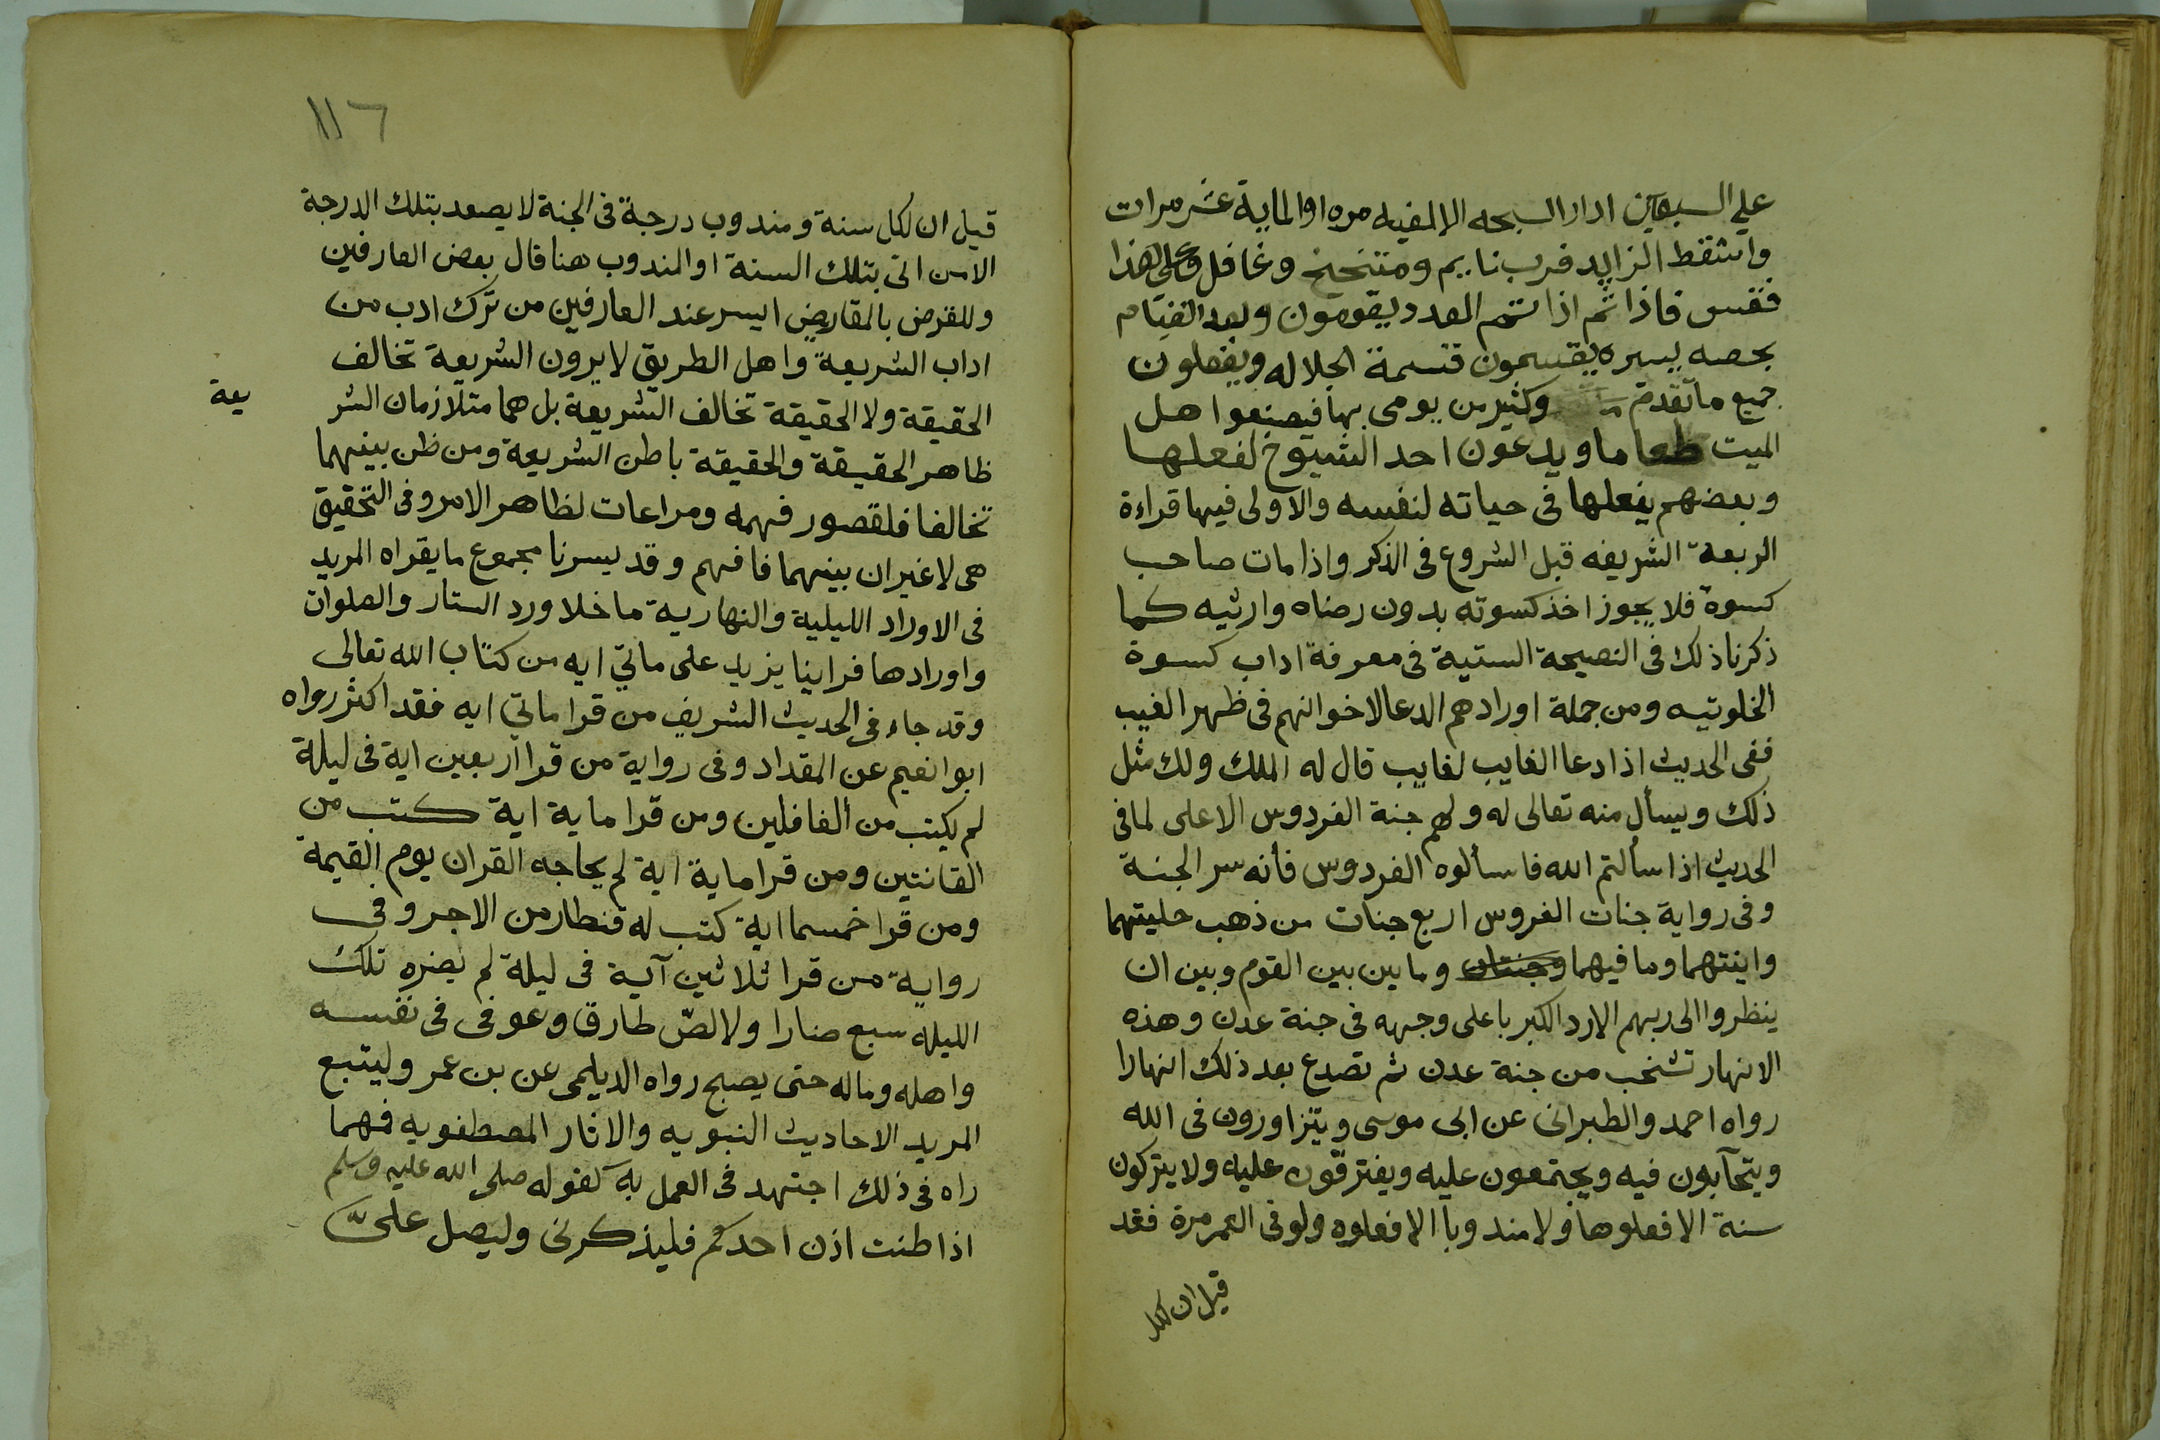 علي السبعين ادار السبحه الالفيه مره او الماية عشر مرات
واشقط الزايد فرب نايم ومتنحنح وغافل وعلى هذا
فقس فاذا تم اذا تم العدد يقومون وبعد القيام
بحصه يسيره يقسمون قسمة الجلاله ويفعلون
جميع ما تقدم وكثير من يومى بها فيصنعوا اهل
الميت طعاما ويدعون احد الشيوخ لفعلها
وبعضهم يفعلها فى حياته لنفسه والاولى فيها قراءة
الربعة الشريفه قبل الشروع فى الذكر واذا مات صاحب
كسوة فلا يجوز اخذ كسوته بدون رضاه وارثيه كما
ذكرنا ذلك فى النصيحة السنية فى معرفة اداب كسوة
الخلوتيه ومن جملة اورادهم الدعا لاخوانهم فى ظهر الغيب
ففى الحديث اذا دعا الغايب لغايب قال له الملك ولك مثل
ذلك ويسأل منه تعالى له ولهم جنة الفردوس الاعلى لما فى
الحديث اذا سألتم الله فاسألوه الفردوس فأنه سر الجنة
وفى رواية جنات الفروس اربع جنات من ذهب حليتهما
وانيتهما وما فيهما وجنتان وما بين بين القوم وبين ان
ينظروا الى ربهم الا رد الكبر يا على وجهه فى جنة عدن وهذه
الانهار تشخب من جنة عدن ثم تصدع بعد ذلك انهارا
رواه احمد والطبرانى عن ابى موسى ويتزاورون فى الله
ويتحآبون فيه ويجتمعون عليه ويفترقون عليه ولا يتركون
سنة الا فعلوها ولا مندوبا الا فعلوه ولو فى العمر مرة فقد
قيل ان لكل
١١٦
قيل ان لكل سنة ومندوب درجة فى الجنة لا يصعد بتلك الدرجة
الا من اتى بتلك السنة او المندوب هنا قال بعض العارفين
وللقرض بالمقاريض ايسر عند العارفين من ترك ادب من
اداب الشريعة واهل الطريق لا يرون الشريعة تخالف
الحقيقة ولا الحقيقة تخالف الشريعة بل هما متلازمان الشر
يعة
ظاهر الحقيقة والحقيقة باطن الشريعة ومن ظن بينهما
تخالفا فلقصور فهمه ومراعات لظاهر الامر وفى التحقيق
هى لا غيران بينهما فافهم وقد يسرنا مجموع ما يقراه المريد
فى الاوراد الليلية والنهارية ما خلا ورد الستار والصلوات
واورادها فراينا يزيد على مايتي ايه من كتاب الله تعالى
وقد جاء فى الحديث الشريف من قرا مايتي ايه فقد اكثر رواه
ابوا نعيم عن المقداد وفى رواية من قرا اربعين اية فى ليلة
لم يكتب من الغافلين ومن قرا ماية اية كتب من
القانتين ومن قرا ماية اية لم يحاجه القران يوم القيمة
ومن قرا خمسماية كتب له قنطار من الاجر وفى
رواية من قرا ثلاثين آية فى ليلة لم يضره تلك
الليله سبع ضارا ولا لصّ طارق وعوفى فى نفسه
واهله وماله حتى يصبح رواه الديلمى عن بن عمر وليتبع
المريد الاحاديث النبويه والاثار المصطفويه فهما
راه فى ذلك اجتهد فى العمل به كقوله صلى الله عليه وسلم
اذا طنت اذن احدكم فليذكرنى وليصل علىّ